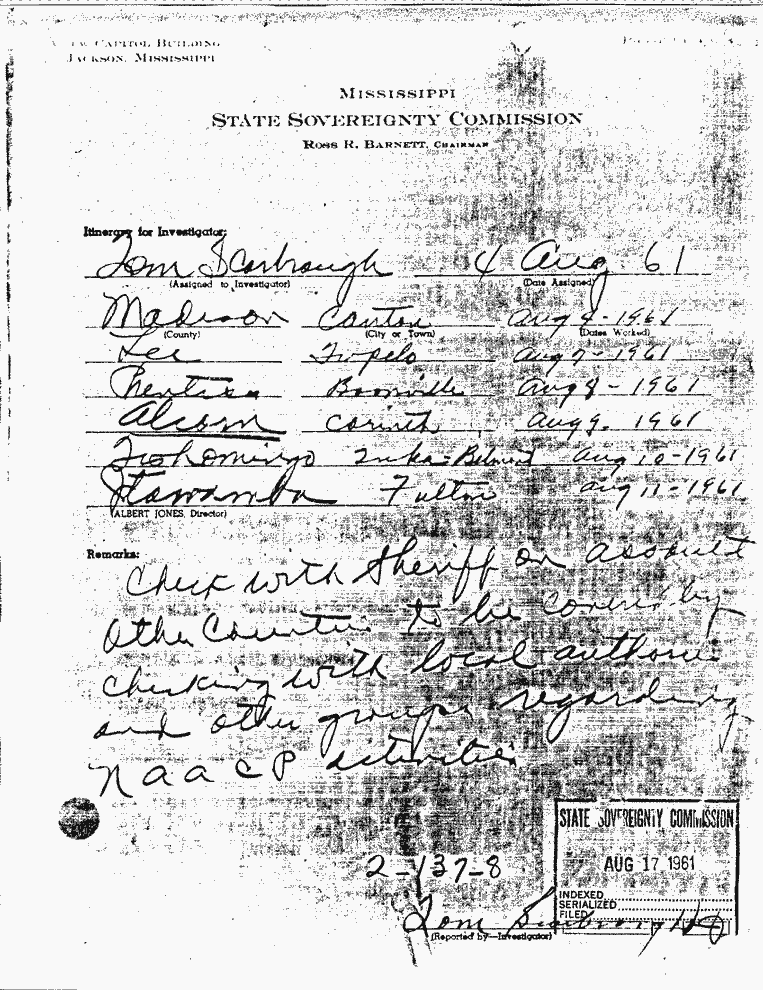 New Capitol Building
Jackson, Mississippi
Mississippi
State Sovereignty Commission
Ross R. Barnett, Chairman
Itinerary for Investigator:
Tom Scarbrough 4 Aug. 61
(Assigned to Investigator) (Date Assigned)
Madison Canton Aug 4-1961
(County) (City or Town) (Dates Worked)
Lee Tupelo Aug 7-1961
Prentiss Booneville Aug 8-1961
Alcorn Corinth Aug 9. 1961
Tishomingo Iuka-Belmont Aug 10-1961
Itawamba Fulton Aug 11-1961
(ALBERT JONES, Director)
Remarks:
Check with Sheriff on assault
Other Counties to be covered by
checking with local authorities
and other groups regarding
NAACP activities
STATE SOVEREIGNTY COMMISSION
AUG 17 1961
INDEXED
SERIALIZED
FILED
2-137-8
Tom Scarbrough
(Reported by—Investigator)